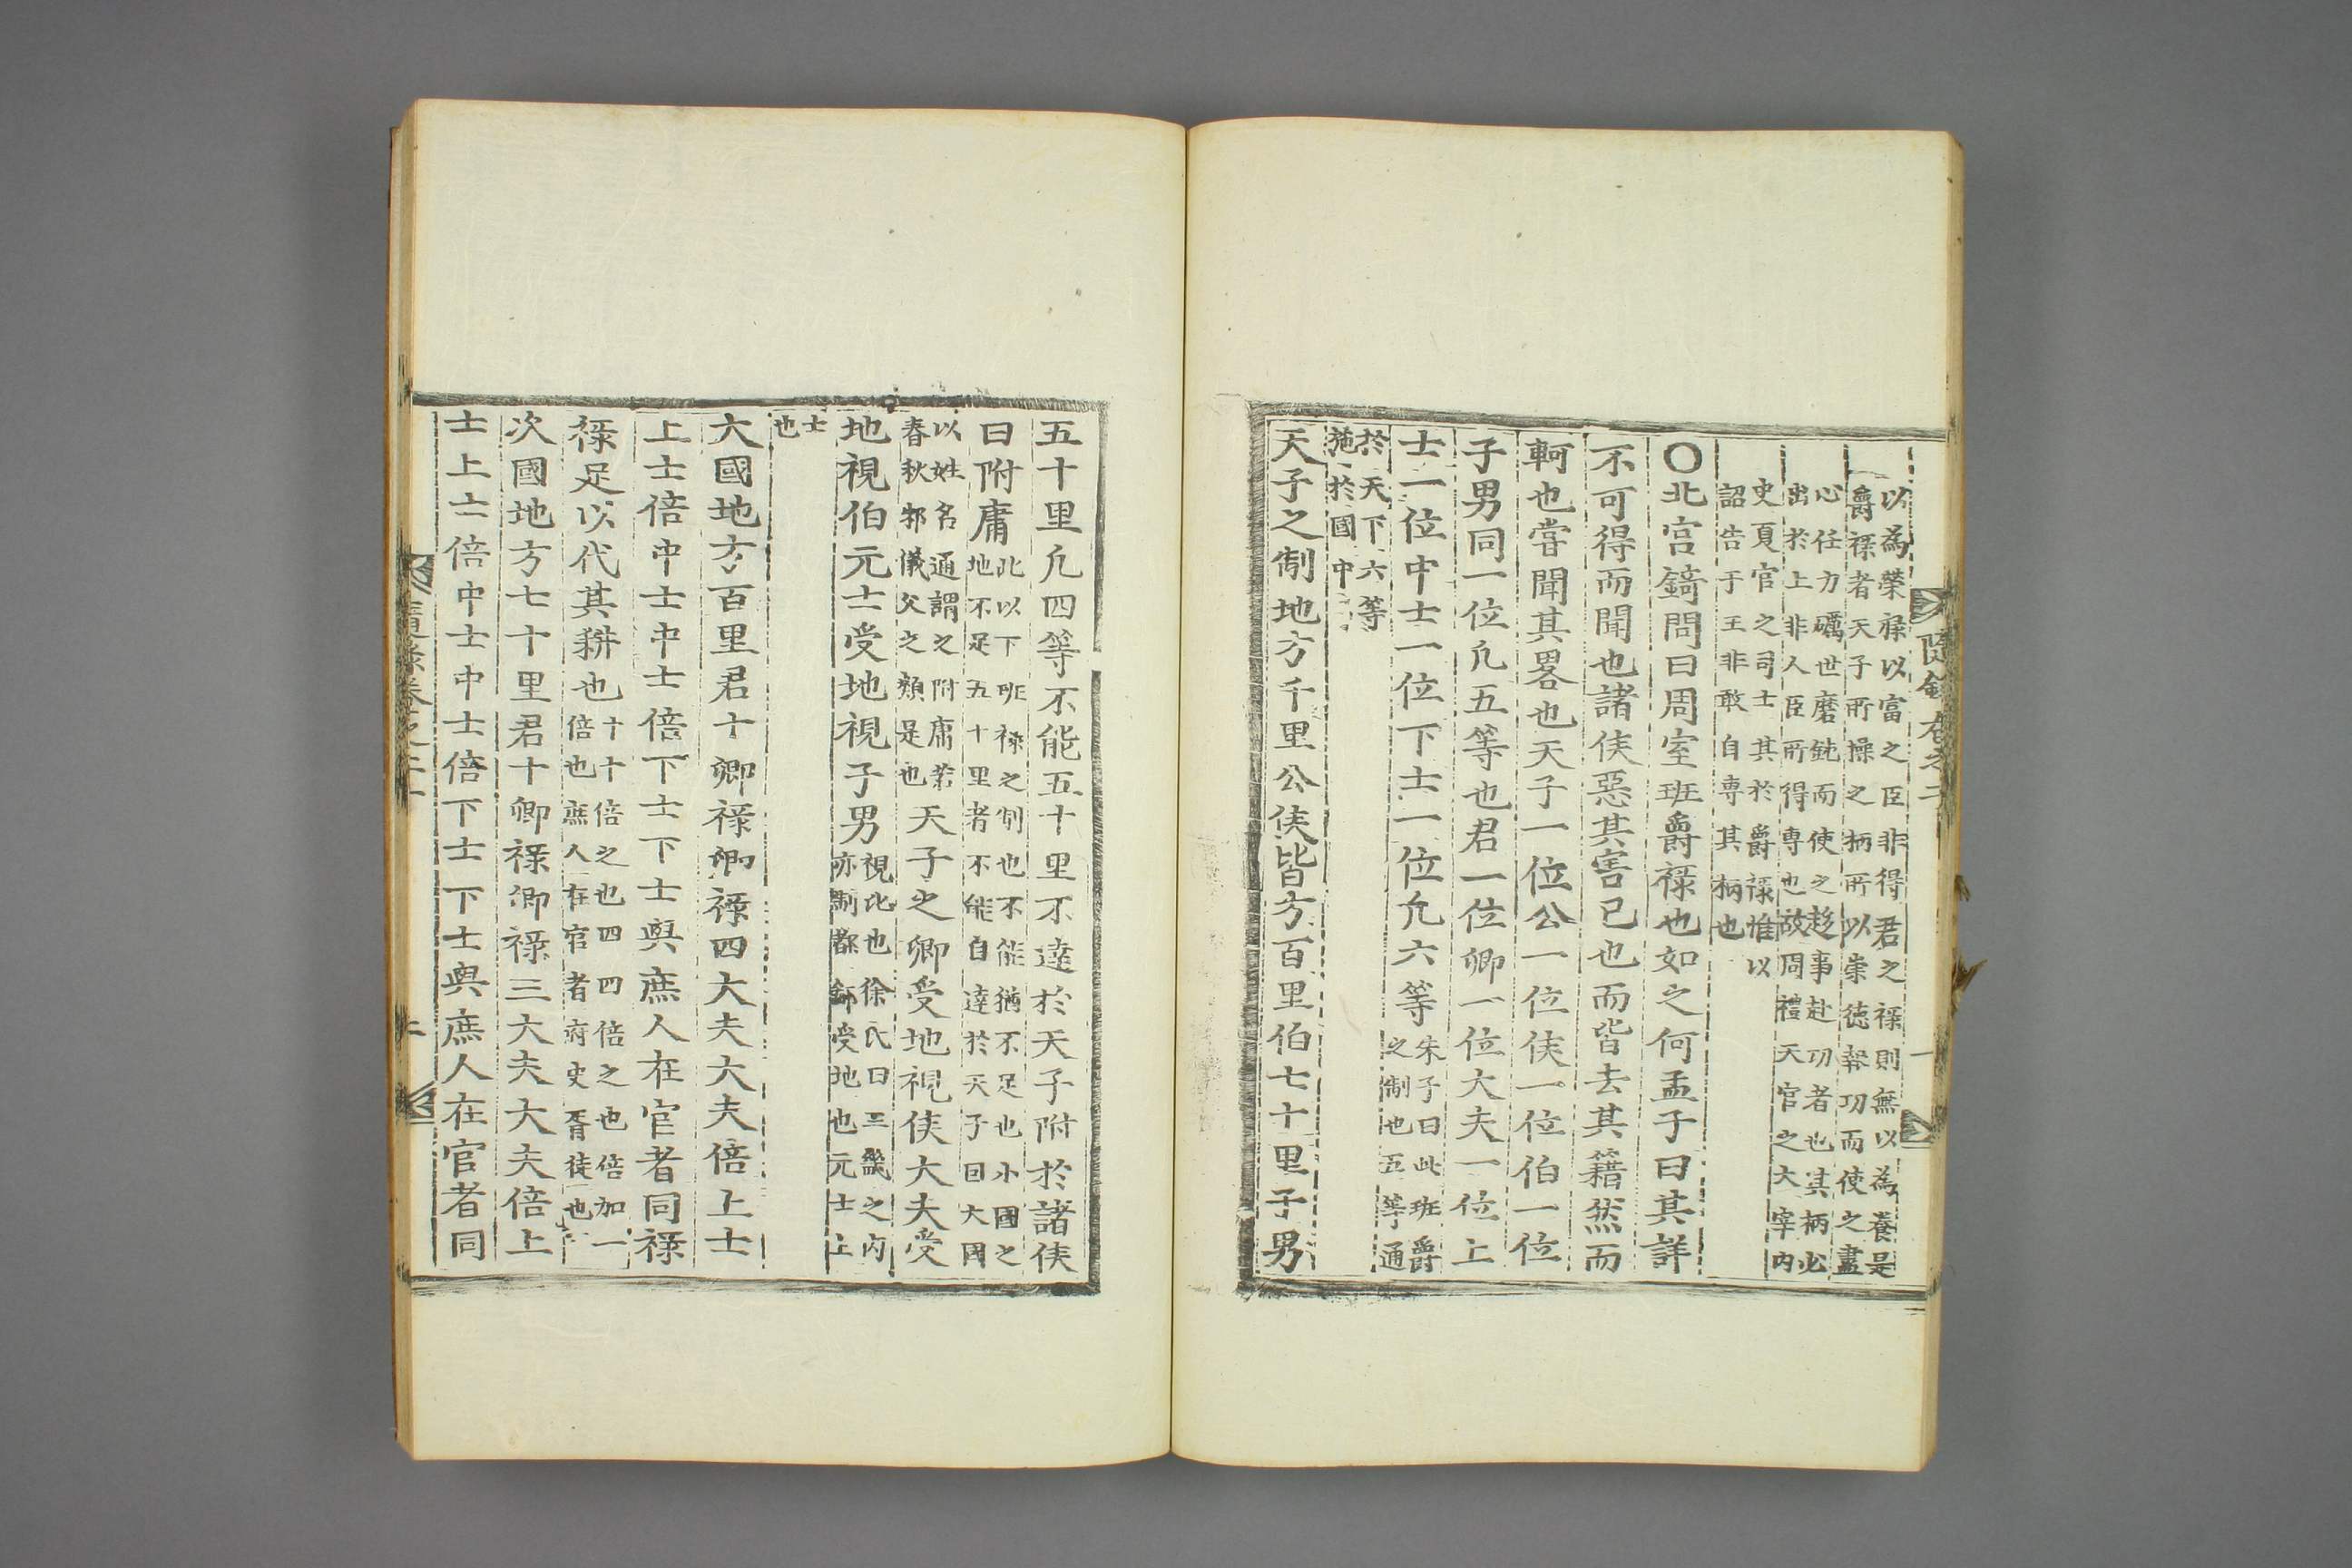 以為榮祿以富之臣非得君之祿則無以為養是
爵祿者天子所操之柄所以崇德報功而使之盡
心任力礪世磨鈍而使之趍事赴功者也其柄必
出於上非人臣所得專也故周禮天官之大宰內
史夏官之司士其於爵祿惟以
詔告于王非敢自專其柄也
○北宮錡問曰周室班爵祿也如之何孟子曰其詳
不可得而聞也諸侯惡其害己也而皆去其籍然而
軻也嘗聞其畧也天子一位公一位侯一位伯一位
子男同一位凡五等也君一位卿一位大夫一位上
士一位中士一位下士一位凡六等朱子曰此班爵
之制也五等通
於天下六等
施於國中
天子之制地方千里公侯皆方百里伯七十里子男
五十里凡四等不能五十里不達於天子附於諸侯
曰附庸此以下班祿之制也不能猶不足也小國之
地不足五十里者不能自達於天子因大國
以姓名通謂之附庸若
春秋邾儀父之類是也天子之卿受地視侯大夫受
地視伯元士受地視子男視比也徐氏曰王畿之內
亦制都鄙受地也元士上
士
也
大國地方百里君十卿祿卿祿四大夫大夫倍上士
上士倍中士中士倍下士下士與庶人在官者同祿
祿足以代其耕也十十倍之也四四倍之也倍加一
倍也庶人在官者府史胥徒也
次國地方七十里君十卿祿卿祿三大夫大夫倍上
士上士倍中士中士倍下士下士與庶人在官者同